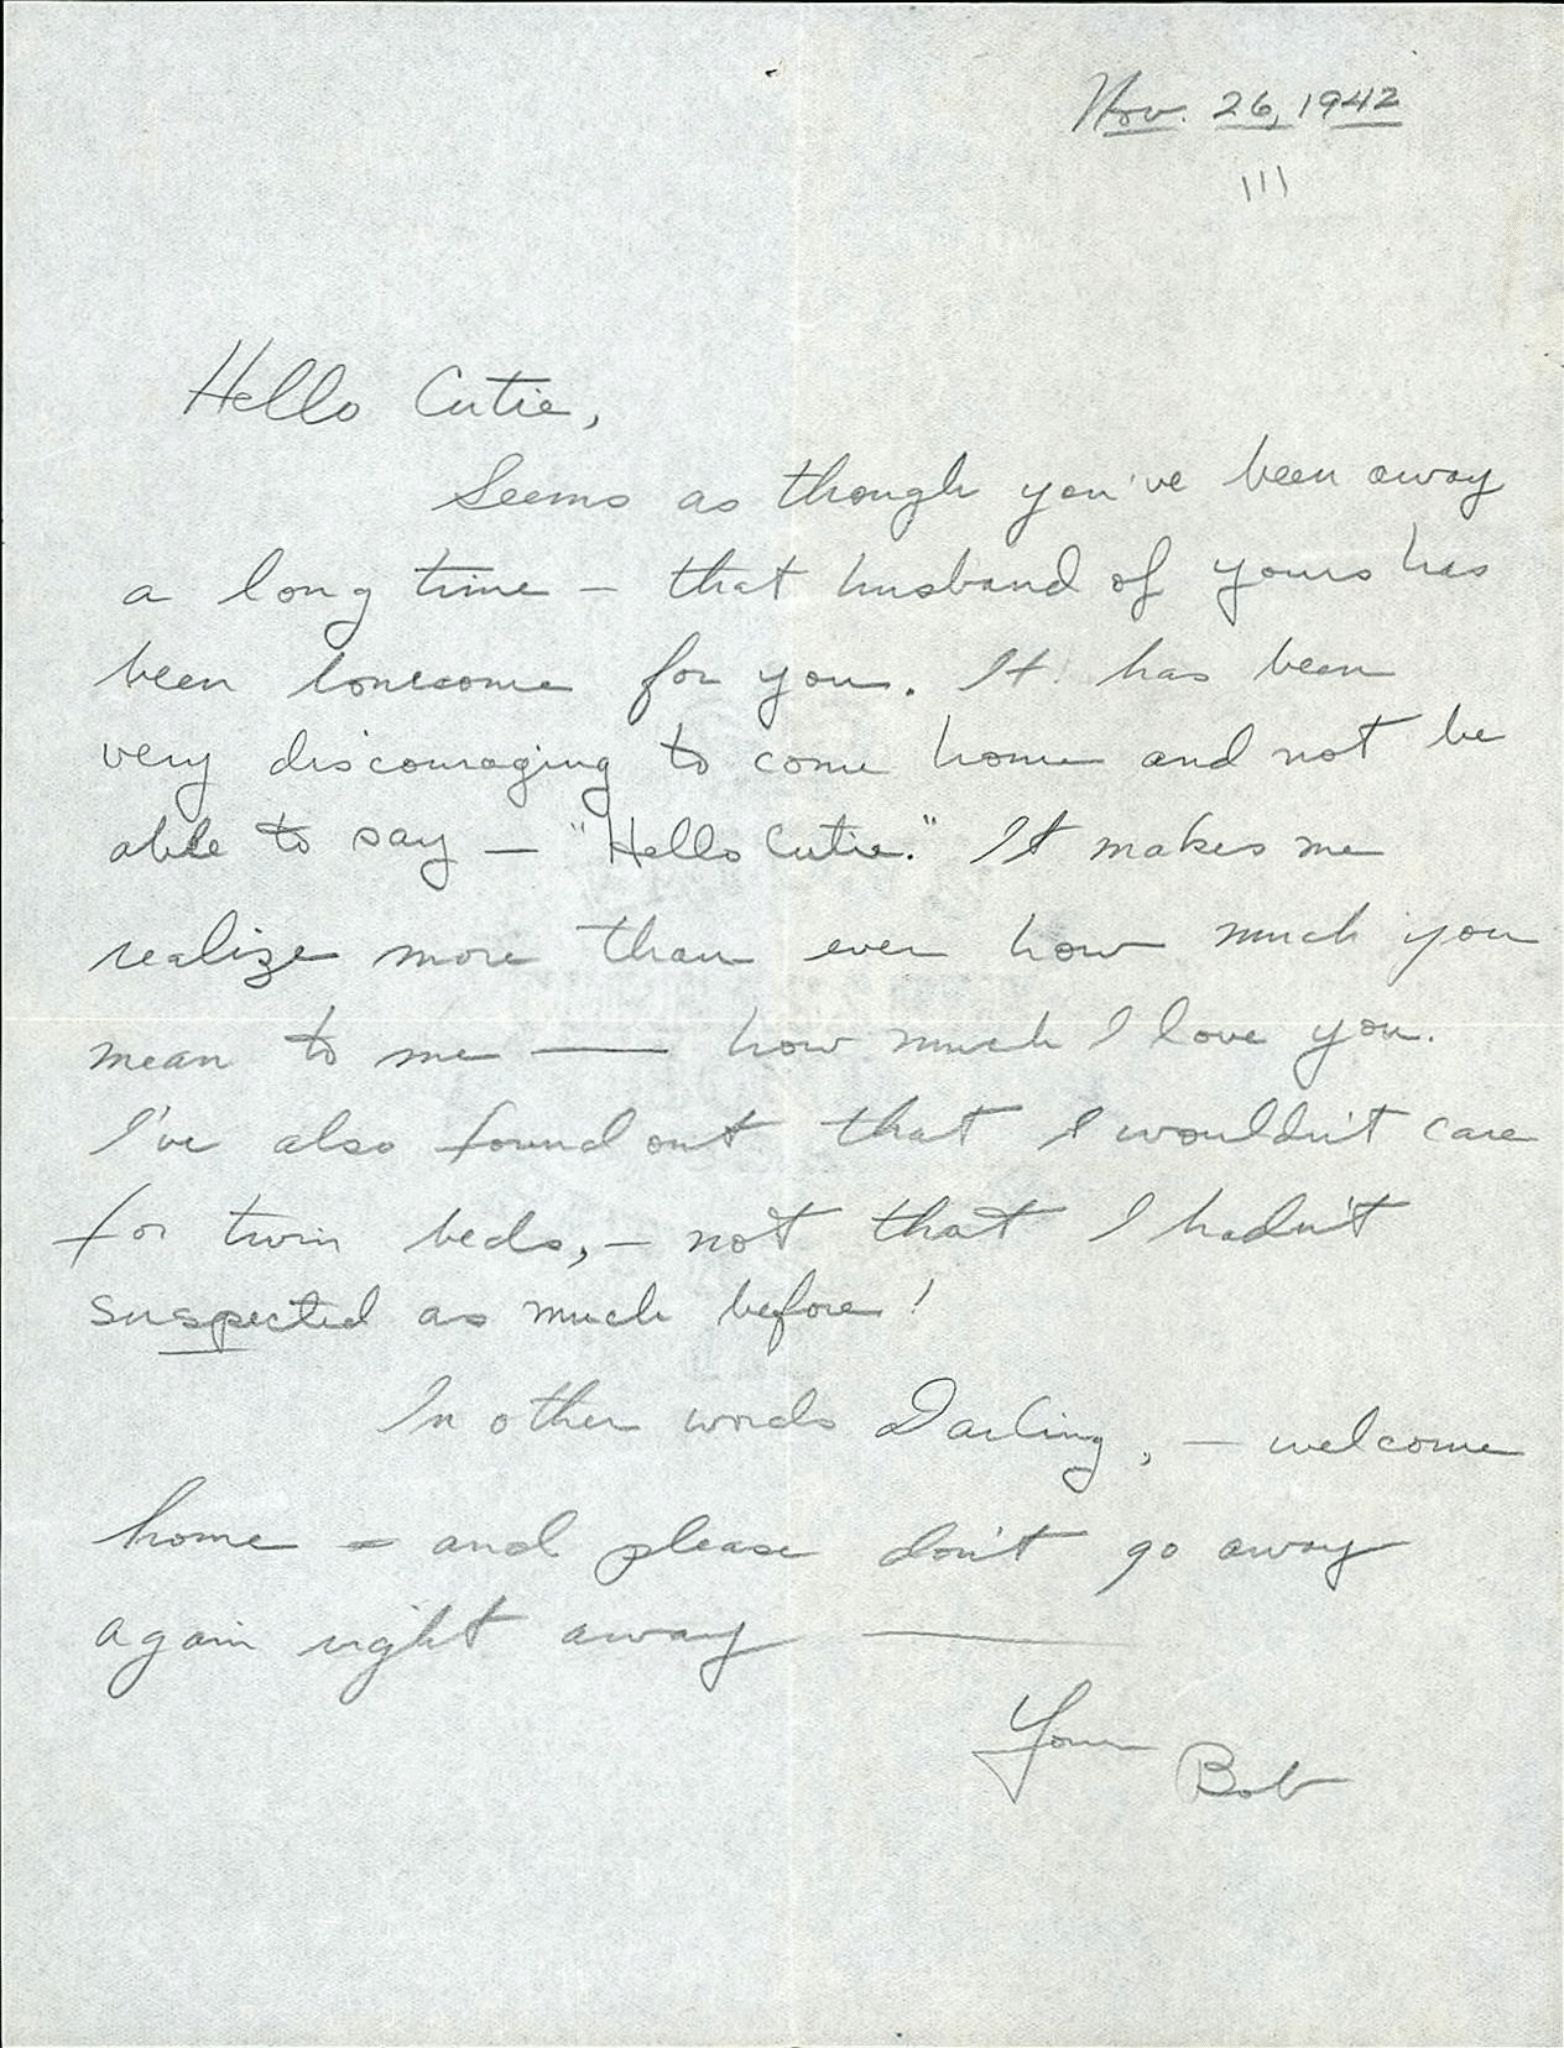 Nov. 26, 1942
Hello Cutie,
Seems as though you've been away
a long time – that husband of yours has
been lonesome for you. It has been
very discouraging to come home and not be
able to say – "Hello Cutie." It makes me
realize more than ever how much you
mean to me — how much I love you.
I've also found out that I wouldn't care
for twin beds, – not that I hadn't
suspected as much before!
In other words Darling, – welcome
home – and please don't go away
again right away —
Your Bob